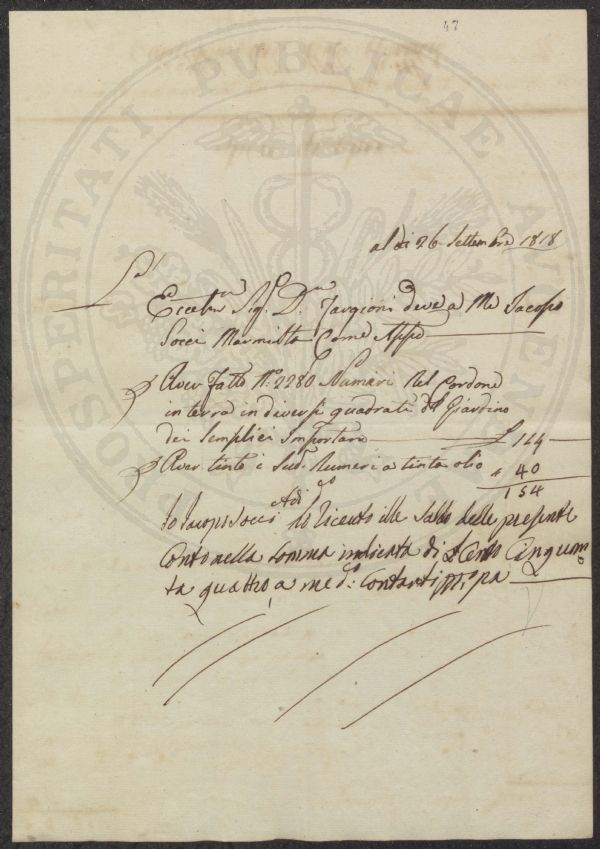 47
PROSPERITATI PVBLICAE AVGENDAE
al di 26 Settembre 1818
L'
Eccell. Sig. D. Targioni deve a Me Jacopo
Socci Marmista Come Appo
Aver fatto N. 2280 Numeri Nel Cordone
in terra in diversi quadrati del Giardino
dei Semplici Importare £ 114
Aver tinto i Sud. Numeri a tinta olio " 40
154
Adi do
Io Jacopo Socci ho ricevuto il Saldo delle presente
Conto nella somma indicata di £ Cento Cinquan
ta quattro, a me do: Contanti mo pa